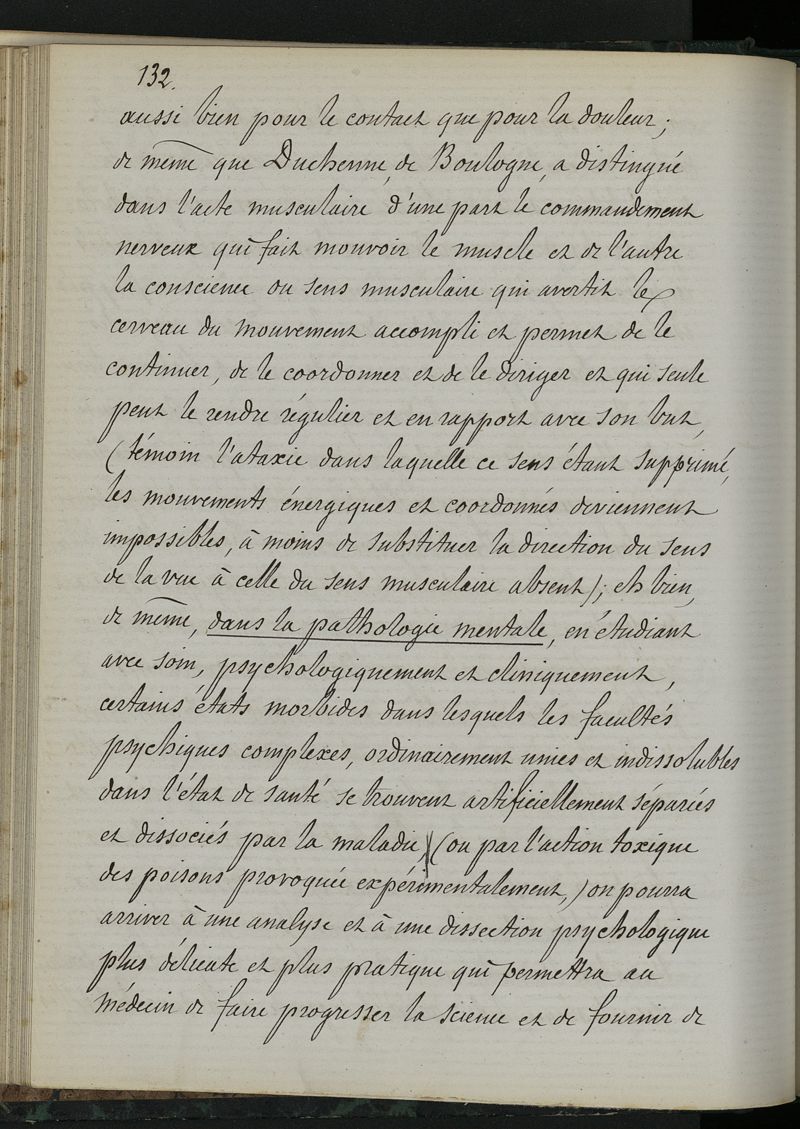 132.
aussi bien pour le contact que pour la douleur;
de même que Duchenne, de Boulogne, a distingué
dans l'acte musculaire d'une part le commandement
nerveux qui fait mouvoir le muscle et de l'autre
la conscience ou sens musculaire qui avertit le
cerveau du mouvement accompli et permet de le
continuer, de le coordonner et de le diriger et qui seule
peut le rendre régulier et en rapport avec son but,
(témoin l'ataxie dans laquelle ce sens étant supprimé,
les mouvements énergiques et coordonnés deviennent
impossibles, à moins de substituer la direction du sens
de la vue à celle du sens musculaire absent); eh bien,
de même, dans la pathologie mentale, en étudiant
avec soin, psychologiquement et cliniquement,
certains états morbides dans lesquels les facultés
psychiques complexes, ordinairement unies et indissolubles
dans l'état de santé se trouvent artificiellement séparées
et dissociés par la maladie (ou par l'action toxique
des poisons provoquée expérimentalement,) on pourra
arriver à une analyse et à une dissection psychologique
plus délicate et plus pratique qui permettra au
médecin de faire progresser la science et de fournir de